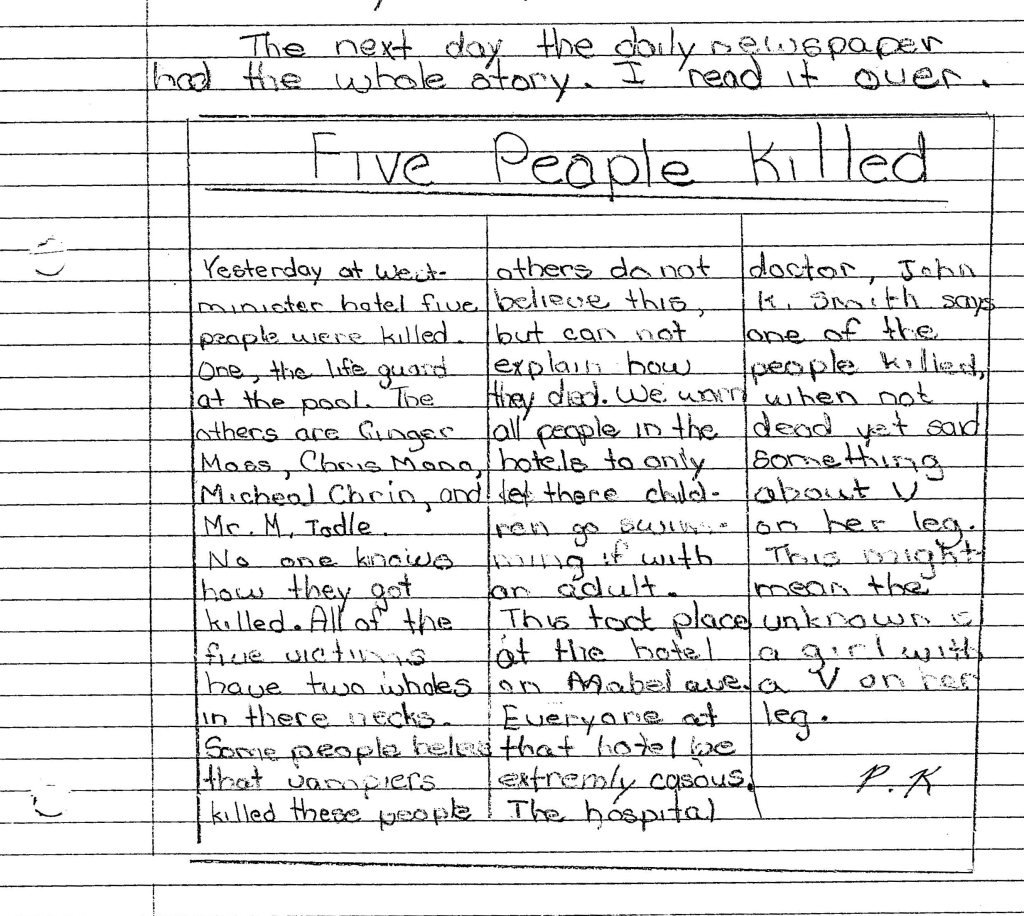 The next day the daily newspaper
had the whole story. I read it over.
Five People Killed
Yesterday at West-
minister hotel five
people were killed.
One, the life guard
at the pool. The
others are Ginger
Moss, Chris Mono,
Micheal Chrin, and
Mr. M. Todle.
No one knows
how they got
killed. All of the
five victims
have two wholes
in there necks.
Some people
that vampiers
killed these people
others do not
believe this,
but can not
explain how
they died. We warn
all people in the
hotels to only
let there child-
ren go swim-
ming if with
an adult.
This took place
at the hotel
on Mabel ave.
Everyone at
that hotel be
extremly casous.
The hospital
doctor, John
K. Smith says
one of the
people killed,
when not
dead yet said
something
about V
on her leg.
This might
mean the
unknown is
a girl with
a V on her
leg.
P.K